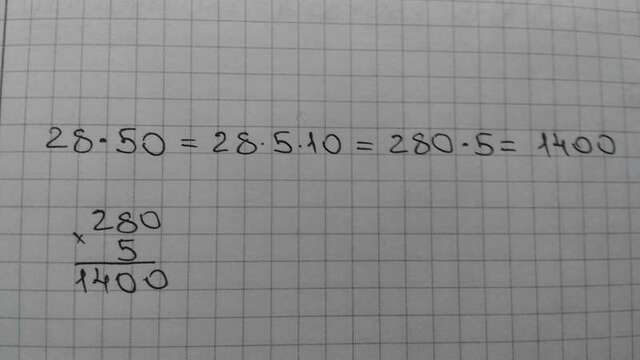 28·50 = 28·5·10 = 280·5 = 1400
280
× 5
1400